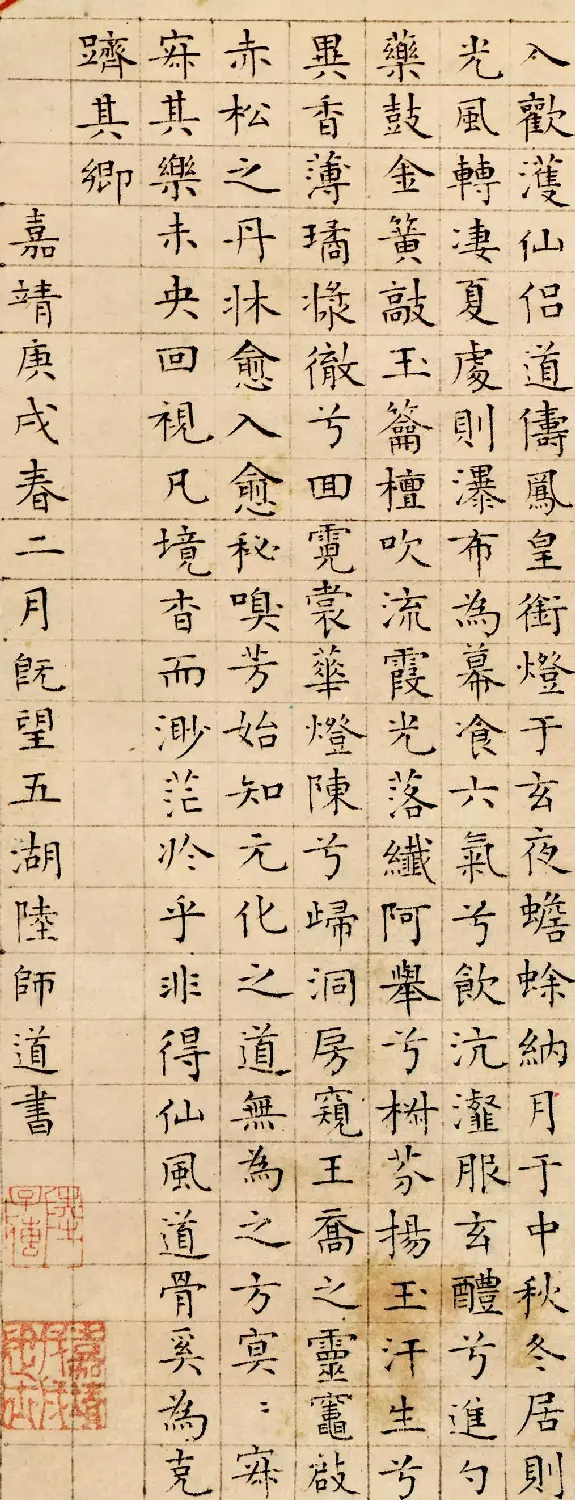 入歡濩仙侶道儔鳳皇銜燈于玄夜蟾蜍納月于中秋冬居則
光風轉凄夏處則瀑布為幕飡六氣兮飲沆瀣服玄醴兮進勺
藥鼓金簧敲玉籥檀吹流霞光落纖阿舉兮樹芬揚玉汗生兮
異香薄璚漿徹兮回霓裳華燈陳兮歸洞房窺王喬之靈竈啟
赤松之丹牀愈入愈秘嗅芳始知元化之道無為之方冥〻寂
寂其樂未央回視凡境杳而渺茫於乎非得仙風道骨奚為克
躋其鄉
嘉靖庚戌春二月既望五湖陸師道書